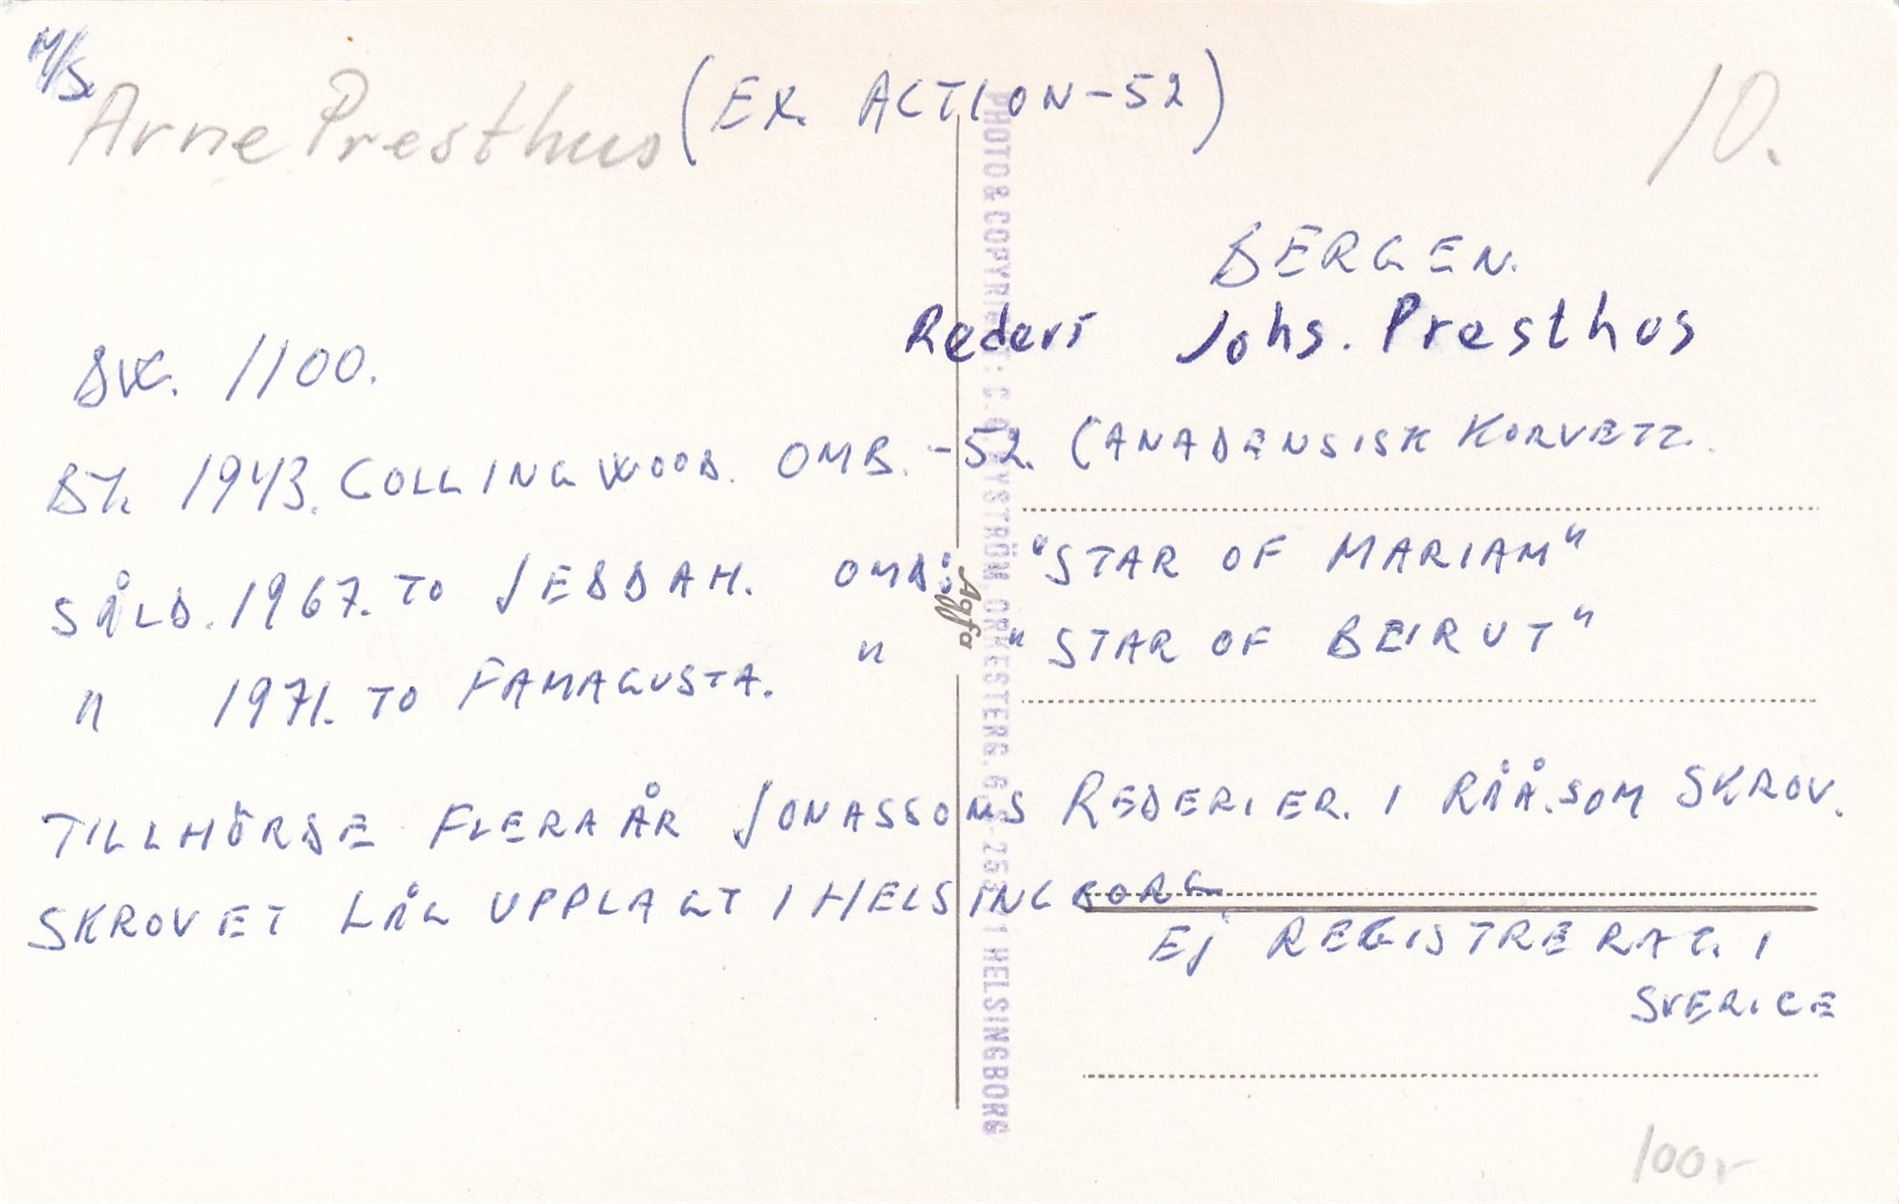 M/S Arne Presthus (EX. ACTION-52)
10.
BERGEN.
Rederi Johs. Presthus
DW. 1100.
BY. 1943. COLLINGWOOD. OMB. -52. CANADENSISK KORVETT.
SÅLD. 1967. TO JEDDAH. OMD: "STAR OF MARIAM"
" 1971. TO FAMAGUSTA. " "STAR OF BEIRUT"
TILLHÖRDE FLERA ÅR JONASSONS REDERIER. I RÅÅ. SOM SKROV.
SKROVET LÅG UPPLAGT I HELSINGBORG
EJ REGISTRERAT. I
SVERIGE
100:-
Agfa
PHOTO & COPYRIGHT: C. NYSTRÖM, ORKESTERG. 6, S-252 1 HELSINGBORG